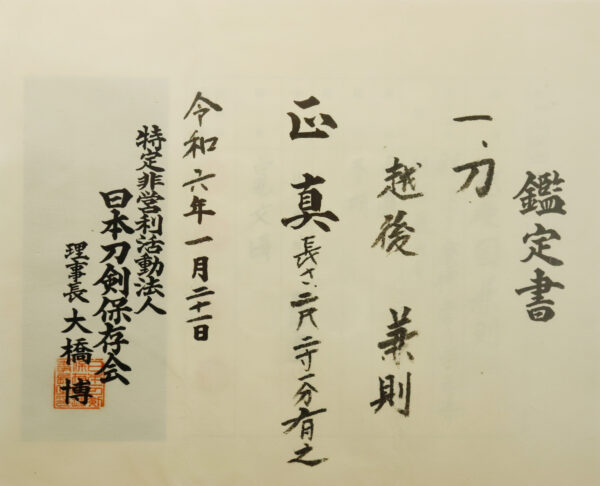 鑑定書
一、刀
越後 兼則
正真
長さ、二尺二寸一分有之
令和六年一月二十一日
特定非営利活動法人
日本刀剣保存会
理事長 大橋 博